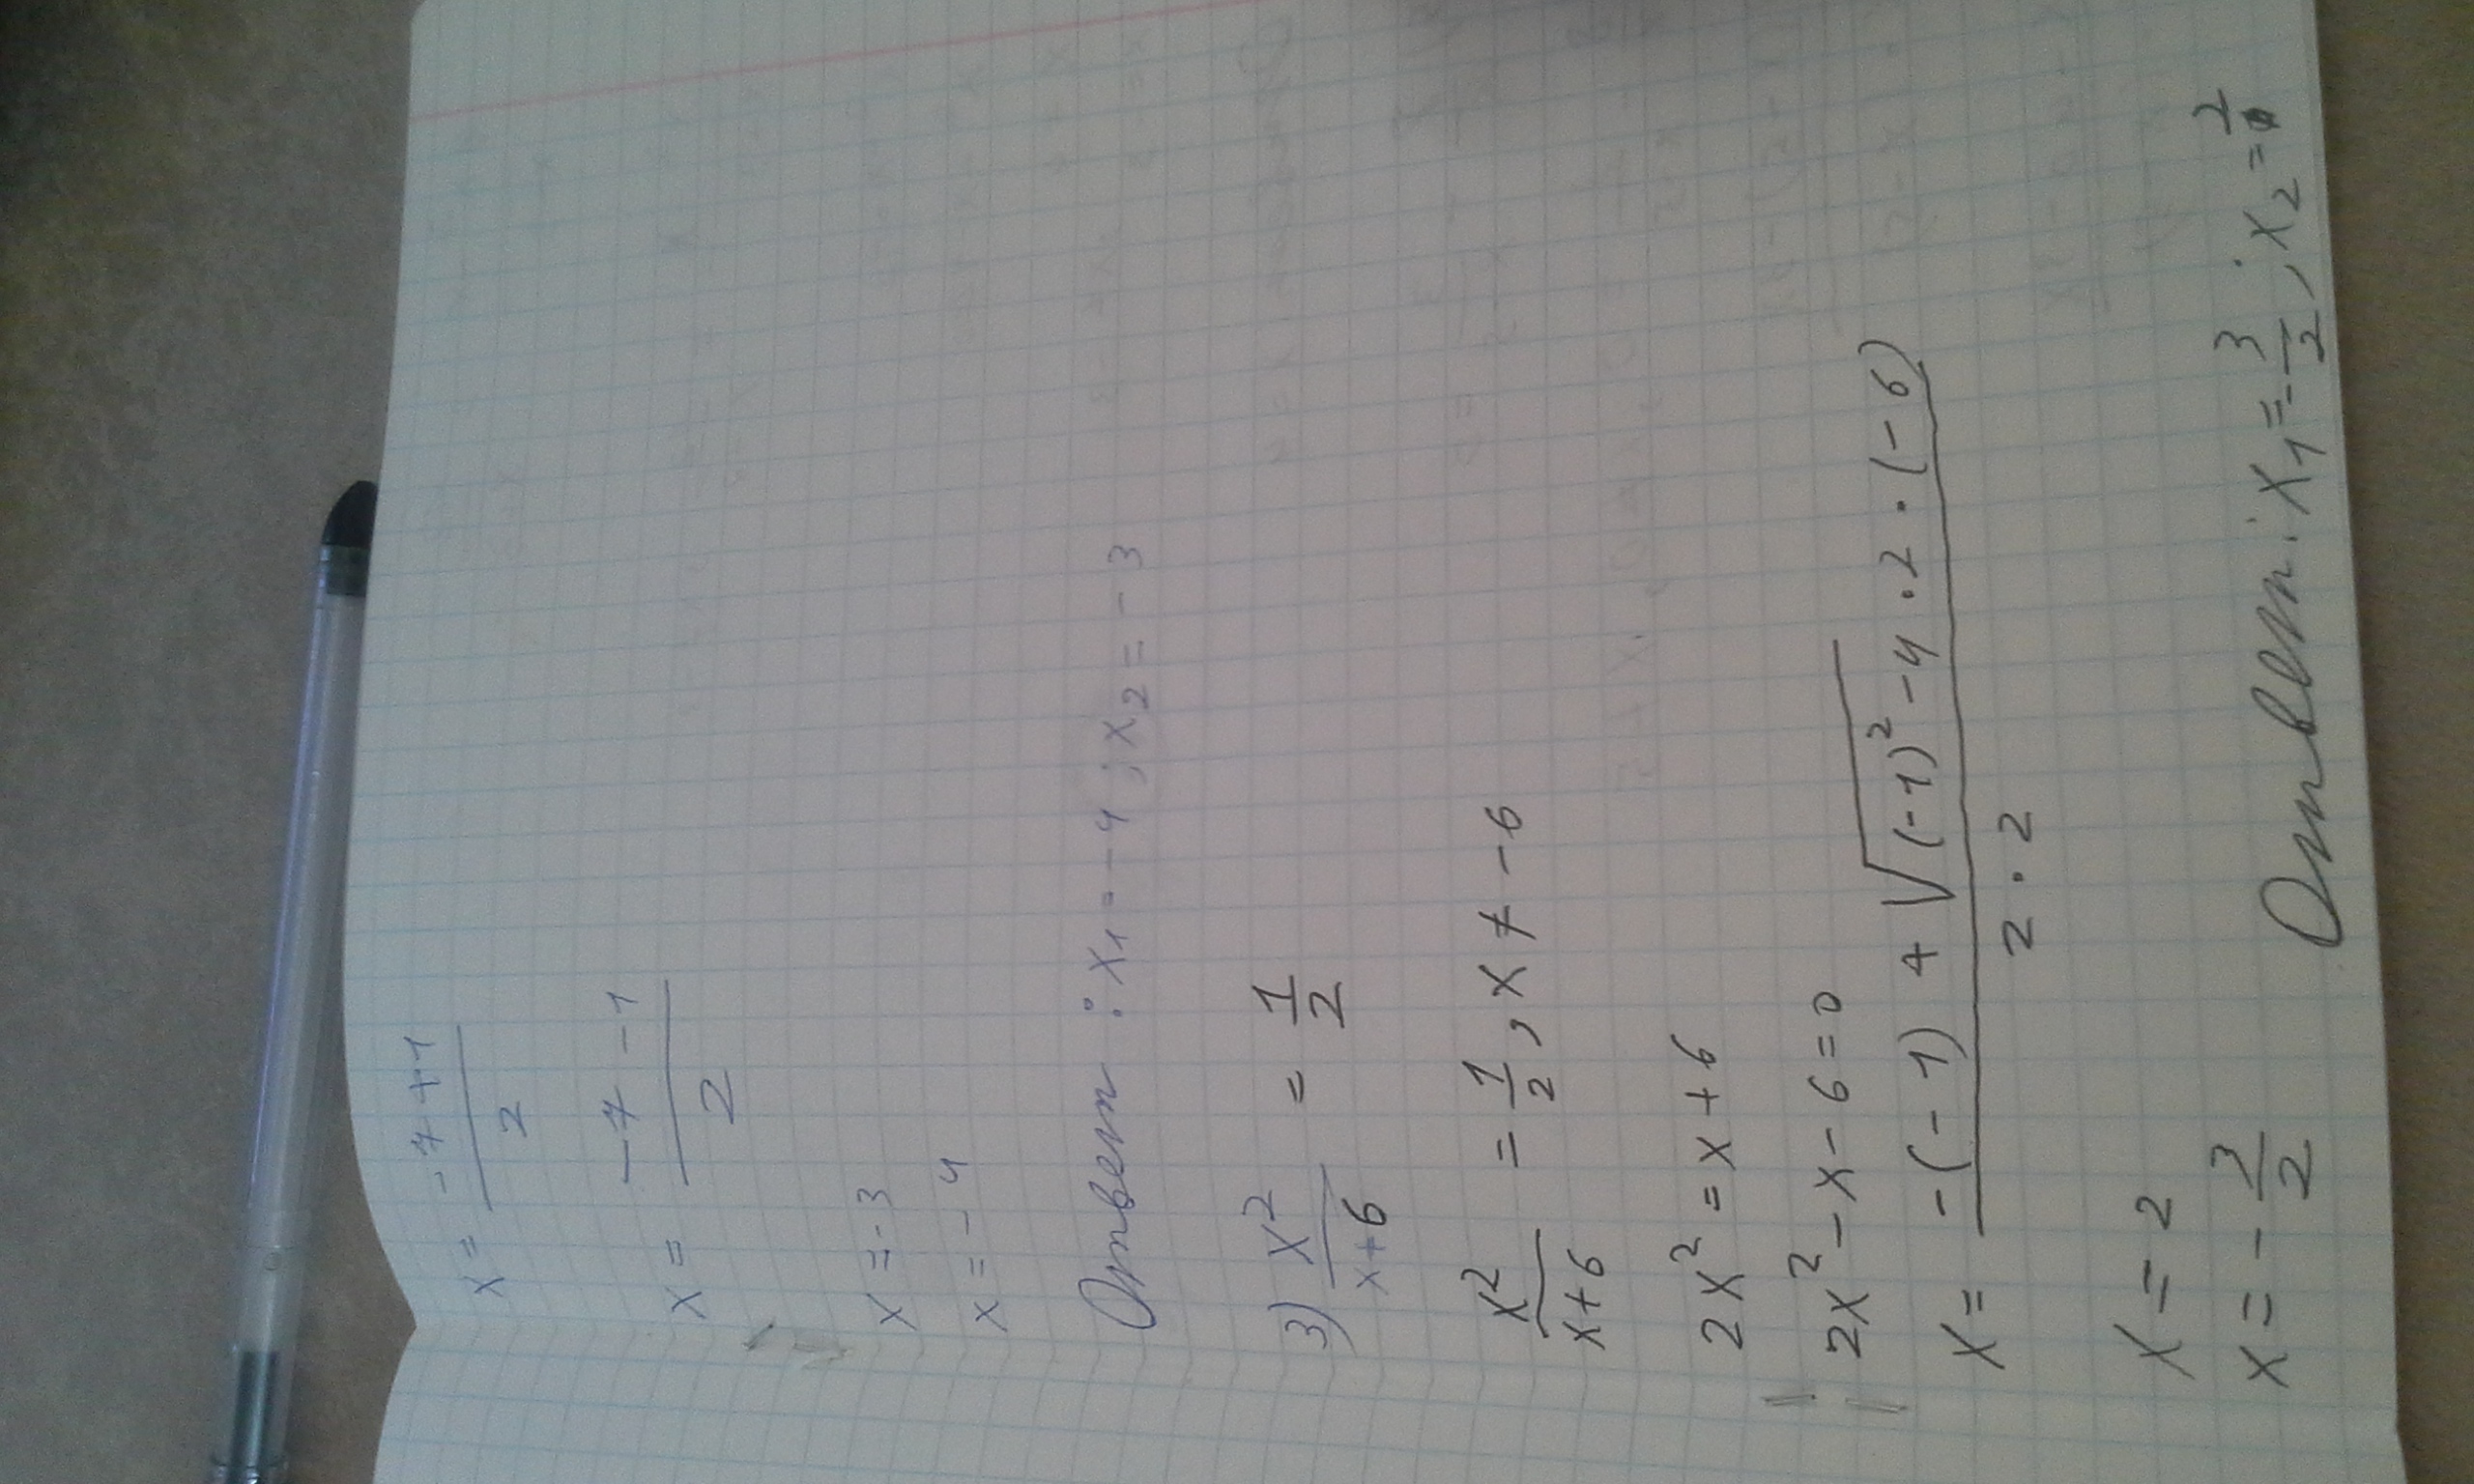 x = (-7+1)/2
x = (-7-1)/2
x = -3
x = -4
Ответ: x₁ = -4; x₂ = -3
3) x²/(x+6) = 1/2
x²/(x+6) = 1/2, x ≠ -6
2x² = x+6
2x² - x - 6 = 0
x = (-(-1) + √((-1)² - 4 · 2 · (-6)))/(2 · 2)
x = 2
x = -3/2
Ответ: x₁ = -3/2; x₂ = 2